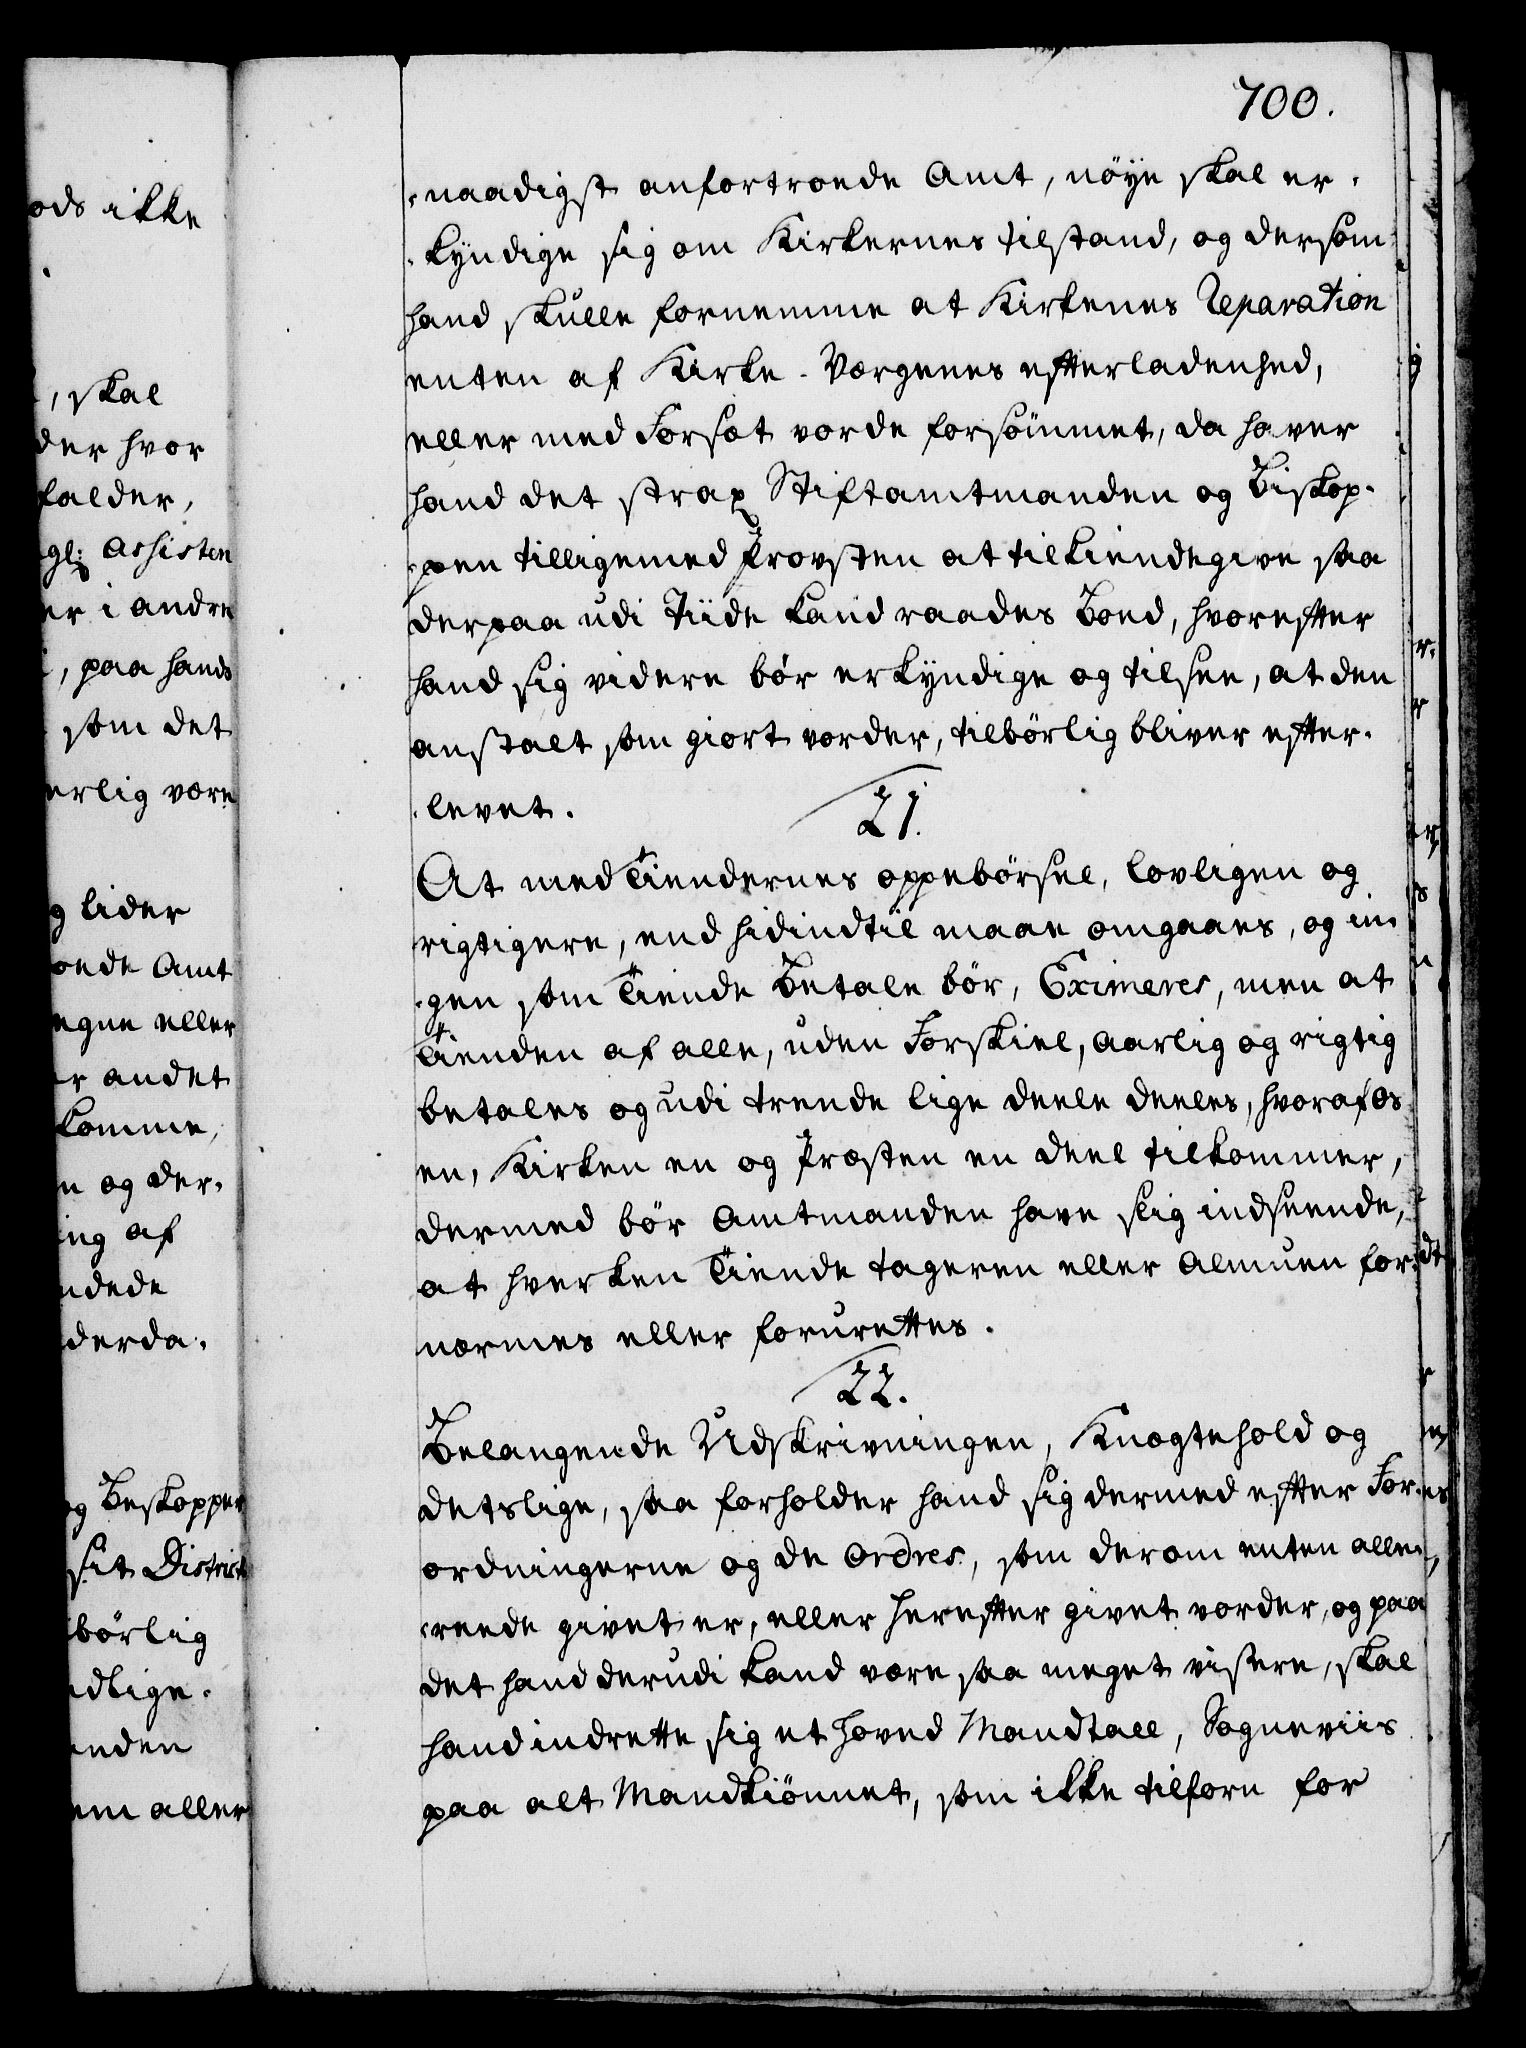 700.
naadigst anfortroede Amt, nöye skal er-
kyndige sig om Kirkernes tilstand, og dersom
hand skulle fornemme at Kirkenes Reparation
enten af Kirke-Værgenes efterladenhed,
eller med Forsæt vorde forsömmet, da haver
hand det strax Stiftamtmanden og Biskop-
pen tilligemed Provsten at tilkiendegive saa
derpaa udi Tiide kand raades Boed, hvorefter
hand sig videre bör erkyndige og tilsee, at den
anstalt som giort vorder, tilbörlig bliver efter-
levet.
21.
At med Tiendernes oppebörsel, lovligen og
rigtigere, end hidindtil maae omgaaes, og in-
gen som Tiende Betale bör, Eximeres, men at
Tienden af alle, uden Forskiel, aarlig og rigtig
betales og udi trende lige deele deeles, hvoraf Os
en, Kirken en og Præsten en deel tilkommer,
dermed bör Amtmanden have slig indseende,
at hverken Tiende tageren eller Almuen for-
nærmes eller forurettes.
22.
Belangende Udskrivningen, Knægtehold og
detslige, saa forholder hand sig dermed efter For-
ordningerne og de Ordres, som derom enten alle-
reede givet er, eller herefter givet vorder, og paa
det hand derudi kand være saa meget vissere, skal
hand indrette sig et hoved Mandtall, Sogneviis
paa alt Mandkiönnet, som ikke tilforn for
ods ikke
, skal
der hvor
falder,
gl: Assisten
er i andre
, paa hands
som det
erlig være
g lider
oede Amt
egne eller
r andet
komme,
n og der-
ing af
ndede
derda-
og Beskopper
sit District
börlig
dlige-
anden
em aller